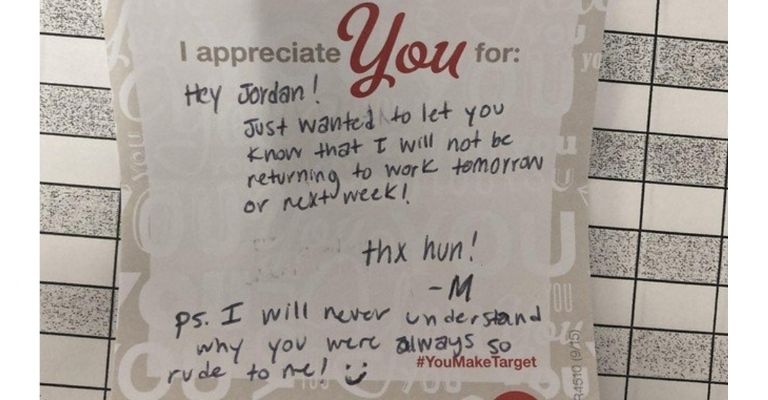 I appreciate You for:
Hey Jordan!
Just wanted to let you
know that I will not be
returning to work tomorrow
or next week!
thx hun!
-M
ps. I will never understand
why you were always so
#YouMakeTarget
rude to me!
R4510 (9/15)